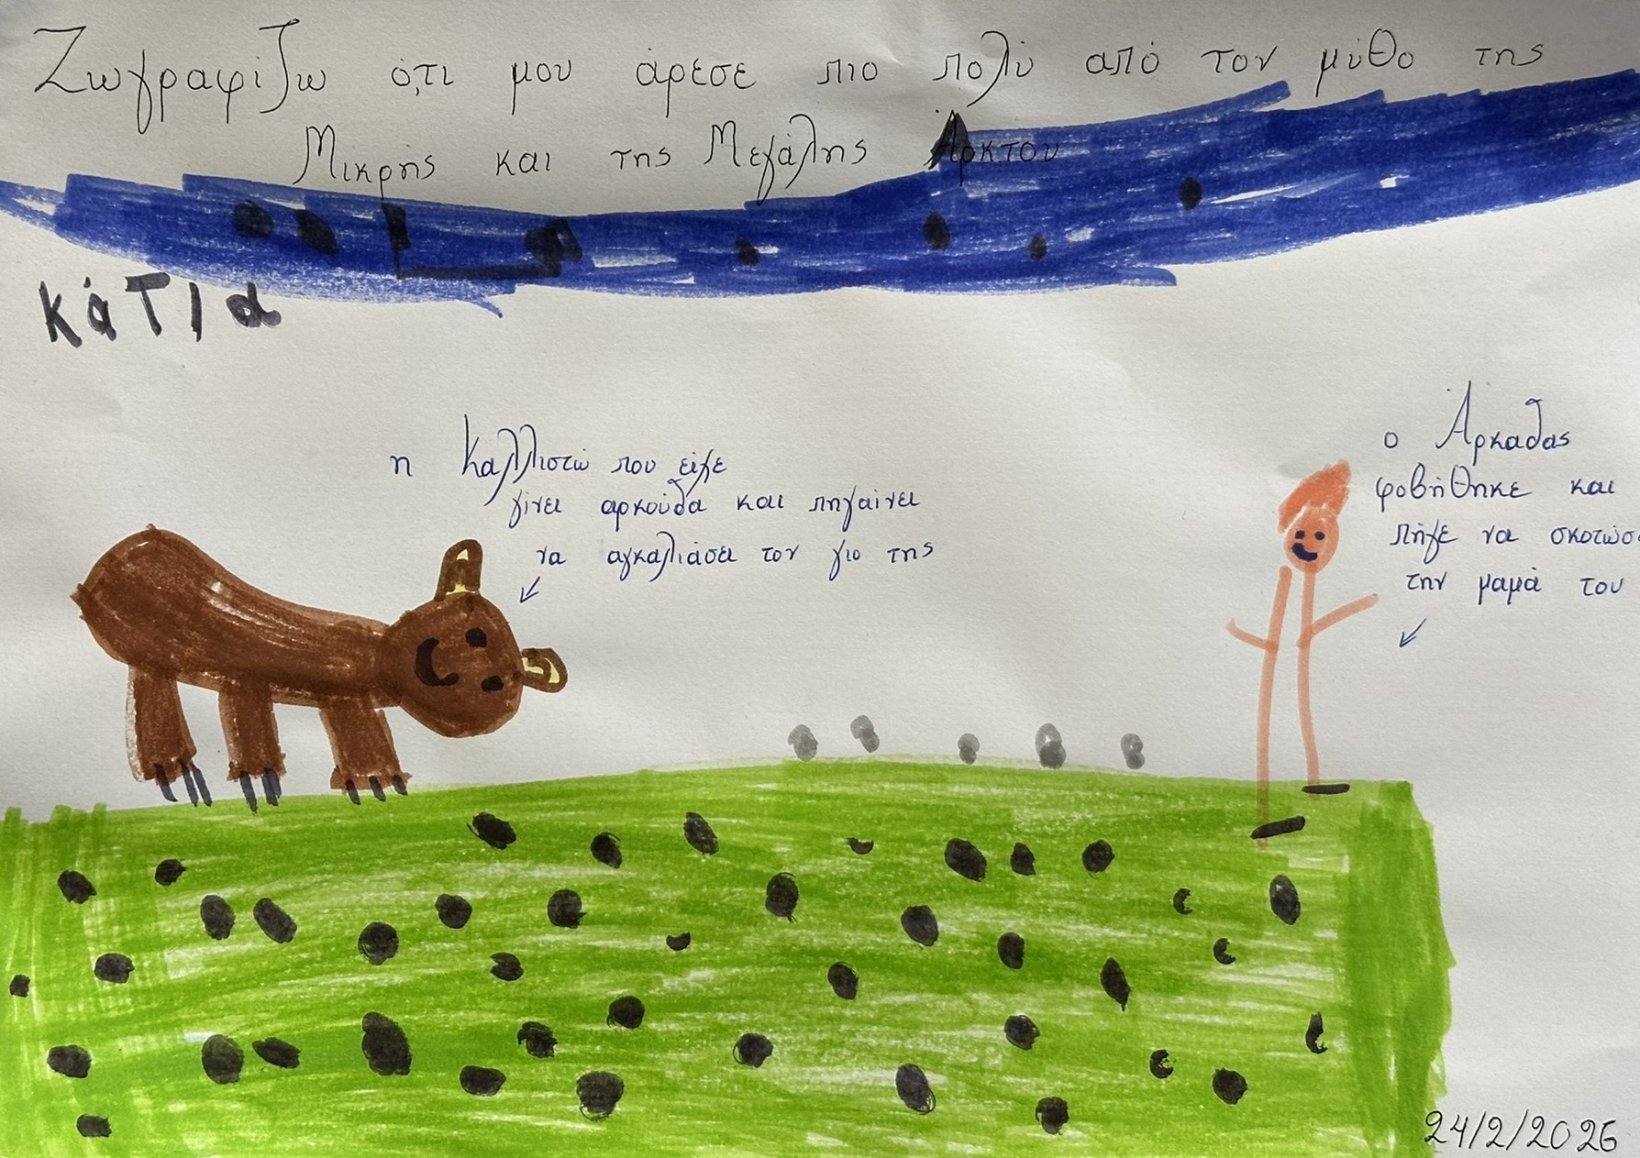 Ζωγραφίζω ό,τι μου άρεσε πιο πολύ από τον μύθο της
Μικρής και της Μεγάλης Άρκτου
κάΤΙα
η Καλλιστώ που είχε
γίνει αρκούδα και πηγαίνει
να αγκαλιάσει τον γιο της
ο Άρκαδας
φοβήθηκε και
πήγε να σκοτώσε
την μαμά του
24/2/2026